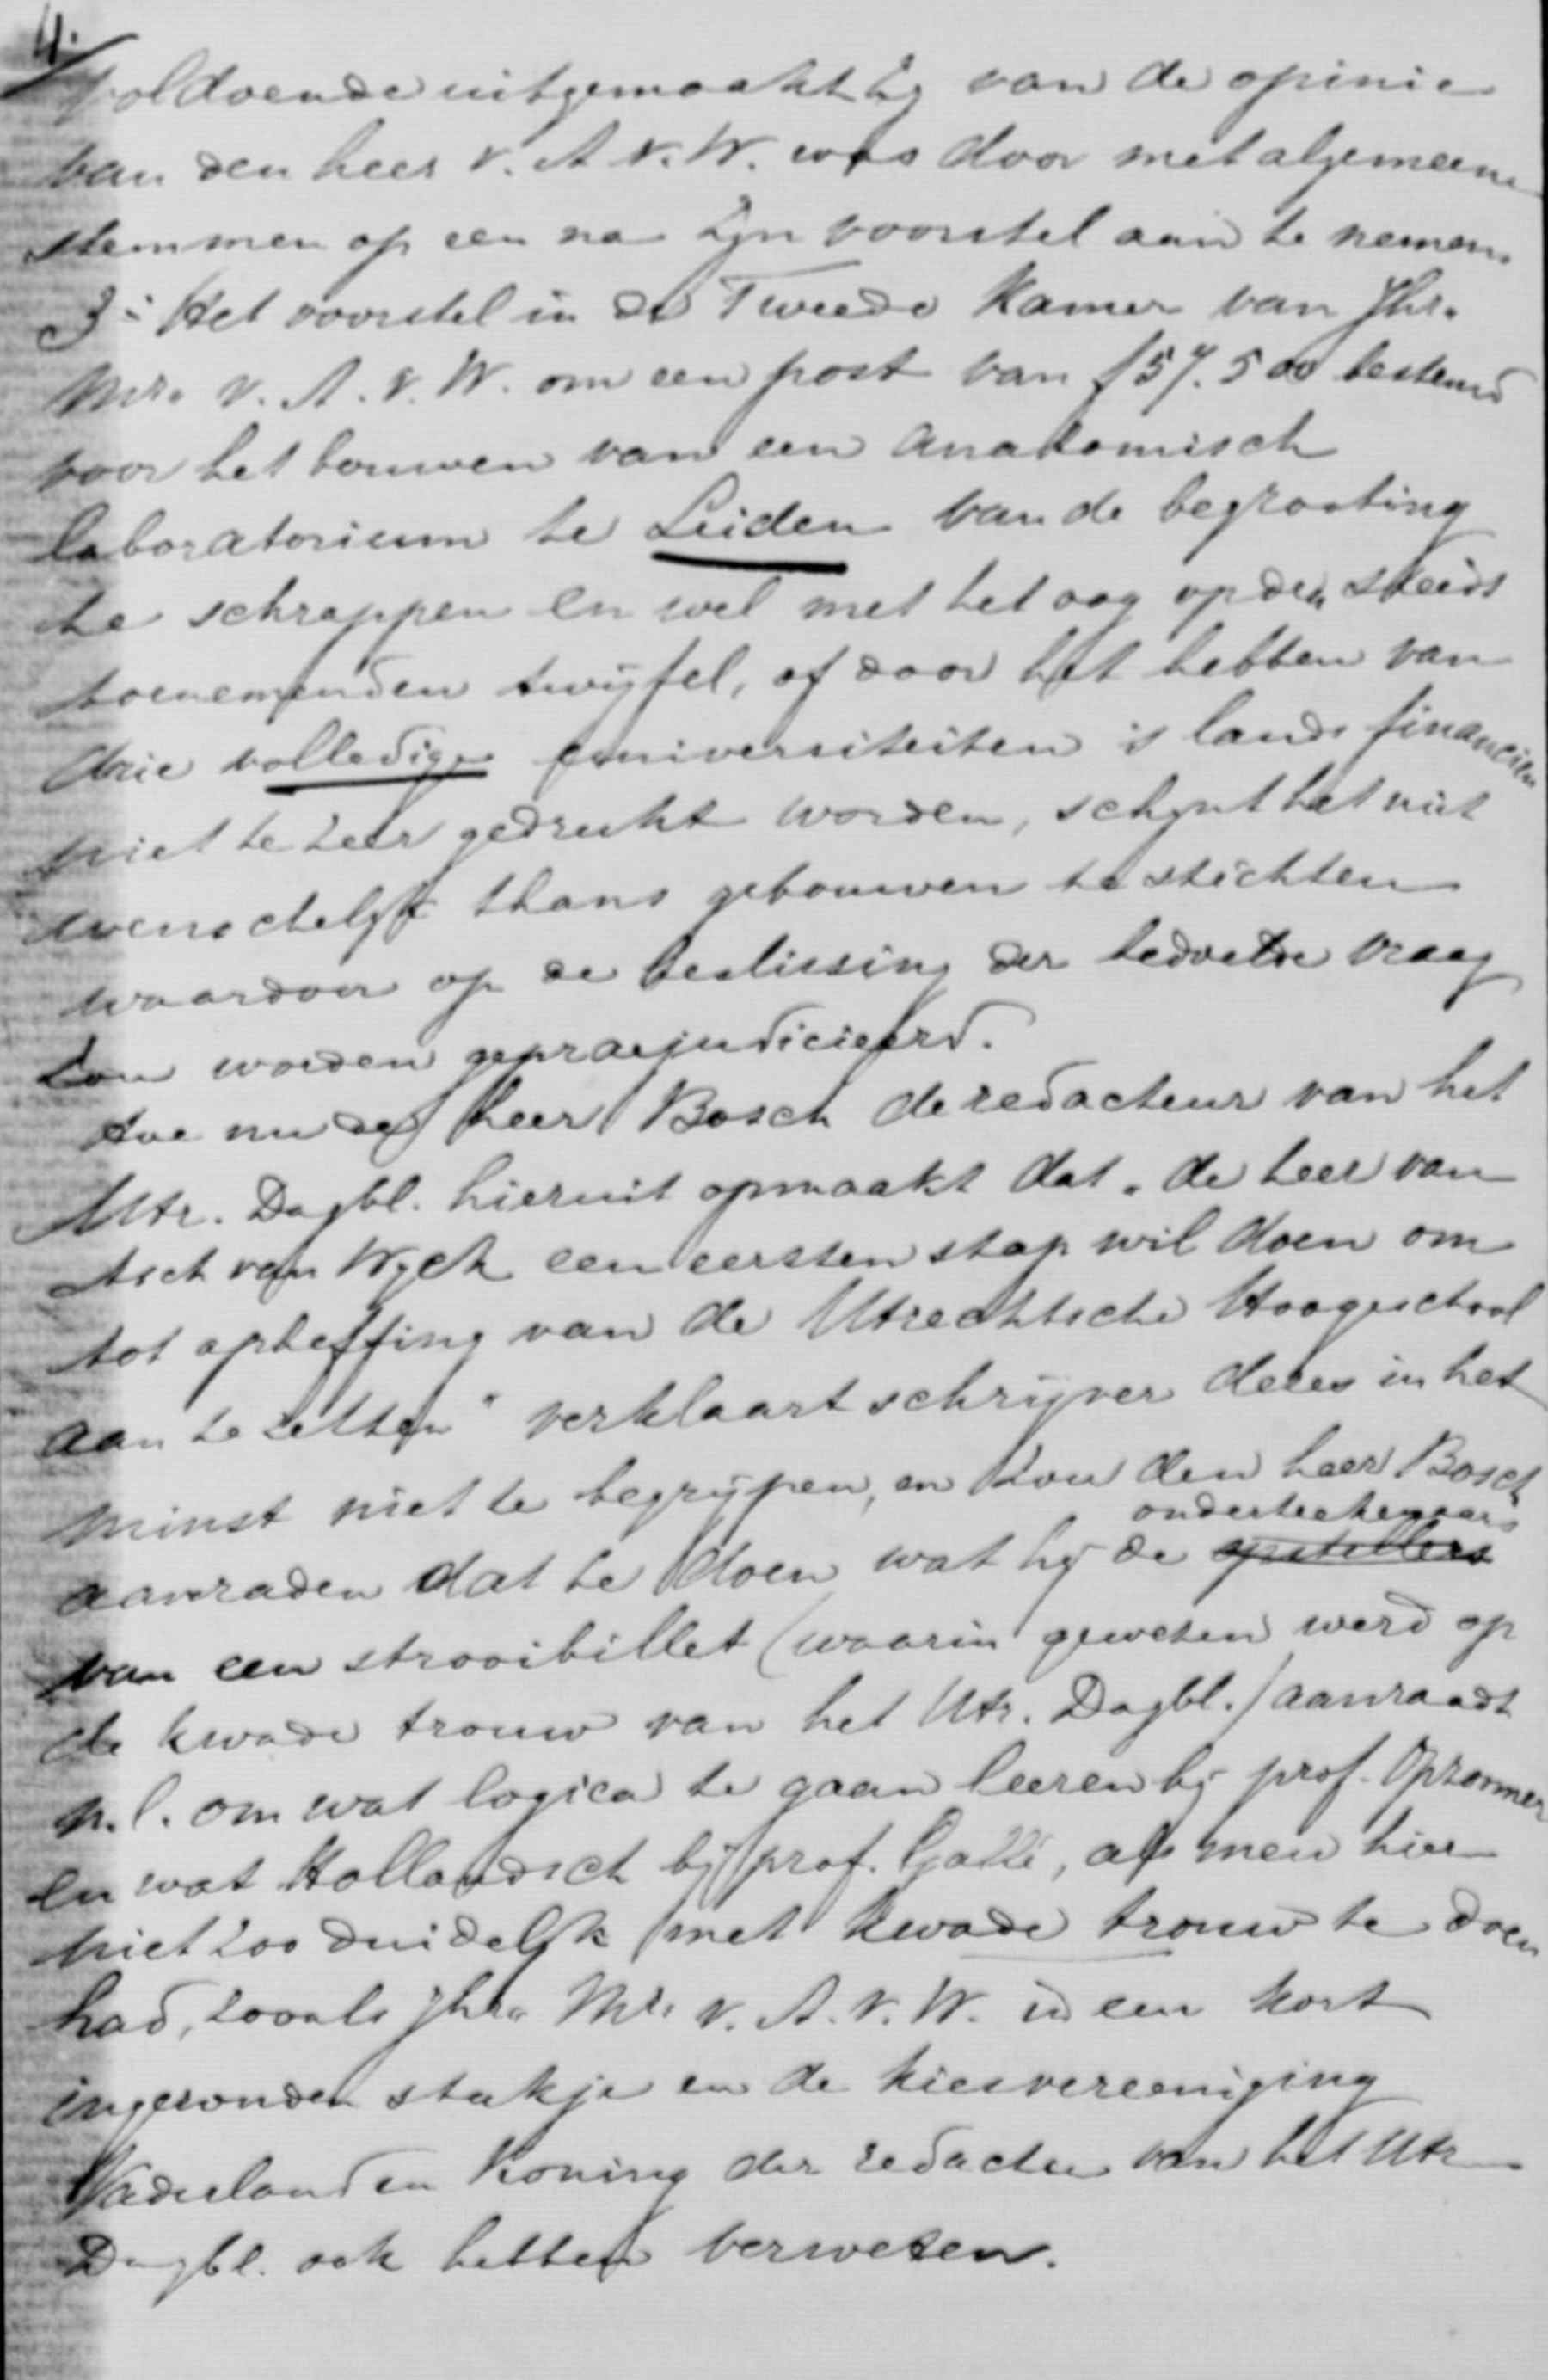 4.
voldoende uitgemaakt hij van de opinie
van den heer v. A v. W. was door met algemeene
stemmen op een na zijn voorstel aan te nemen.
3º Het voorstel in de Tweede Kamer van Jhr.
Mr. v. A. v. W. om een post van f 57.500 bestemd
voor het bouwen van een anatomisch
laboratorium te Leiden van de begrooting
te schrappen en wel met het oog op den steeds
toenemenden twijfel, of door het hebben van
drie volledige universiteiten 's lands financien
niet te zeer gedrukt worden, schijnt het niet
wenschelijk thans gebouwen te stichten
waardoor op de beslissing der bedoelde vraag
zou worden gepraejudicieerd.
Hoe nu de heer Bosch de redacteur van het
Utr. Dagbl. hieruit opmaakt dat "de heer van
Asch van Wijck een eersten stap wil doen om
tot opheffing van de Utrechtsche Hoogeschool
aan te zetten" verklaart schrijver dezes in het
minst niet te begrijpen, en zou den heer Bosch
aanraden dat te doen wat hij de opstellers onderteekenaars
van een strooibillet (waarin gewezen werd op
de kwade trouw van het Utr. Dagbl.) aanraadt
n.l. om wat logica te gaan leeren bij prof. Opzoomer
en wat Hollandsch bij prof. Gallé, als men hier
niet zoo duidelijk met kwade trouw te doen
had, zooals Jhr. Mr. v. A. v. W. in een kort
ingezonden stukje en de kiesvereeniging
Vaderland en Koning der redactie van het Utr.
Dagbl. ook hebben verweten.